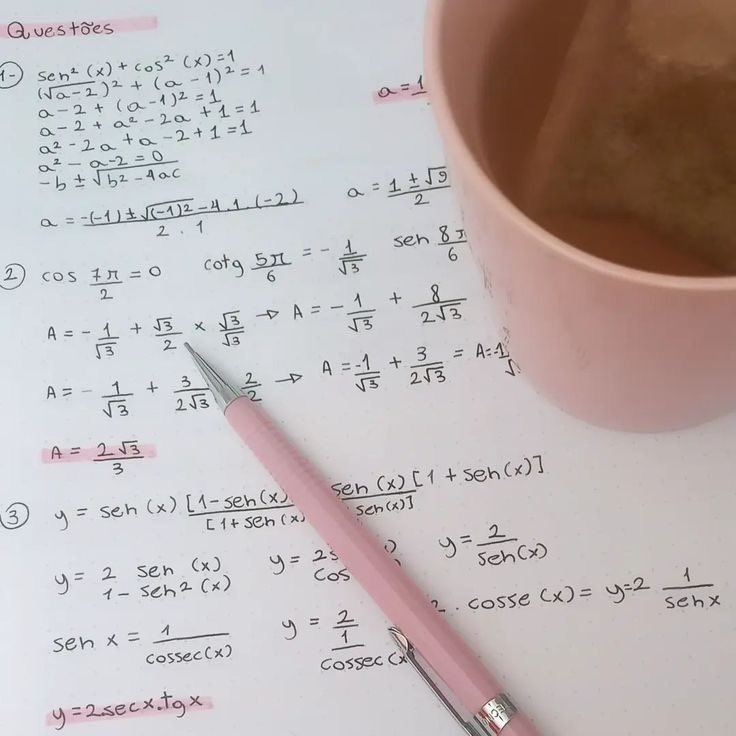 Questões
1- sen² (x) + cos² (x) = 1
(√a-2)² + (a - 1)² = 1
a - 2 + (a - 1)² = 1
a - 2 + a² - 2a + 1 = 1
a² - 2a + a - 2 + 1 = 1
a² - a - 2 = 0
-b ± √b² - 4ac
a = 1
a = -(-1) ± √(-1)² - 4 . 1 . (-2) / 2 . 1
a = 1 ± √9 / 2
2 cos 7π/2 = 0 cotg 5π/6 = - 1/√3 sen 8π/6
A = - 1/√3 + √3/2 × √3/√3 → A = - 1/√3 + 8/2√3
A = - 1/√3 + 3/2√3 2/2 → A = -1/√3 + 3/2√3 = A = -1/√
A = 2√3/3
3 y = sen (x) [1 - sen(x) / [1 + sen(x) sen (x) [1 + sen(x)] / sen(x)]
y = 2 sen (x) / 1 - sen² (x) y = 2 / cos y = 2/sen(x)
sen x = 1/cossec(x) y = 2 / 1/cossec(x 2 . cosse (x) = y = 2 1/sen x
y = 2secx.tgx